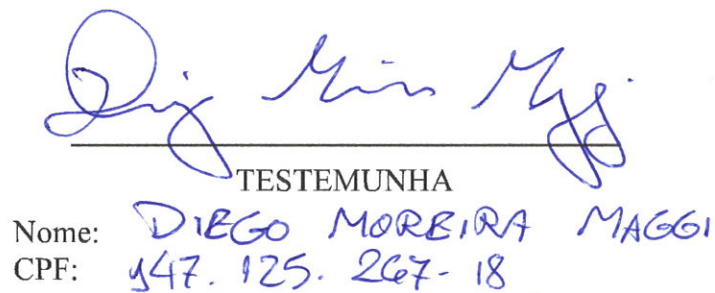 TESTEMUNHA
Nome: DIEGO MOREIRA MAGGI
CPF: 147.125.267-18